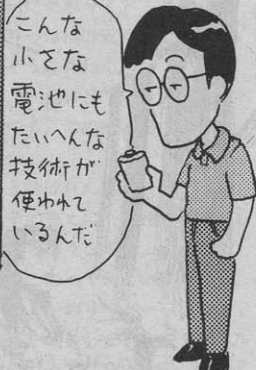 こんな
小さな
電池にも
たいへんな
技術が
使われて
いるんだ